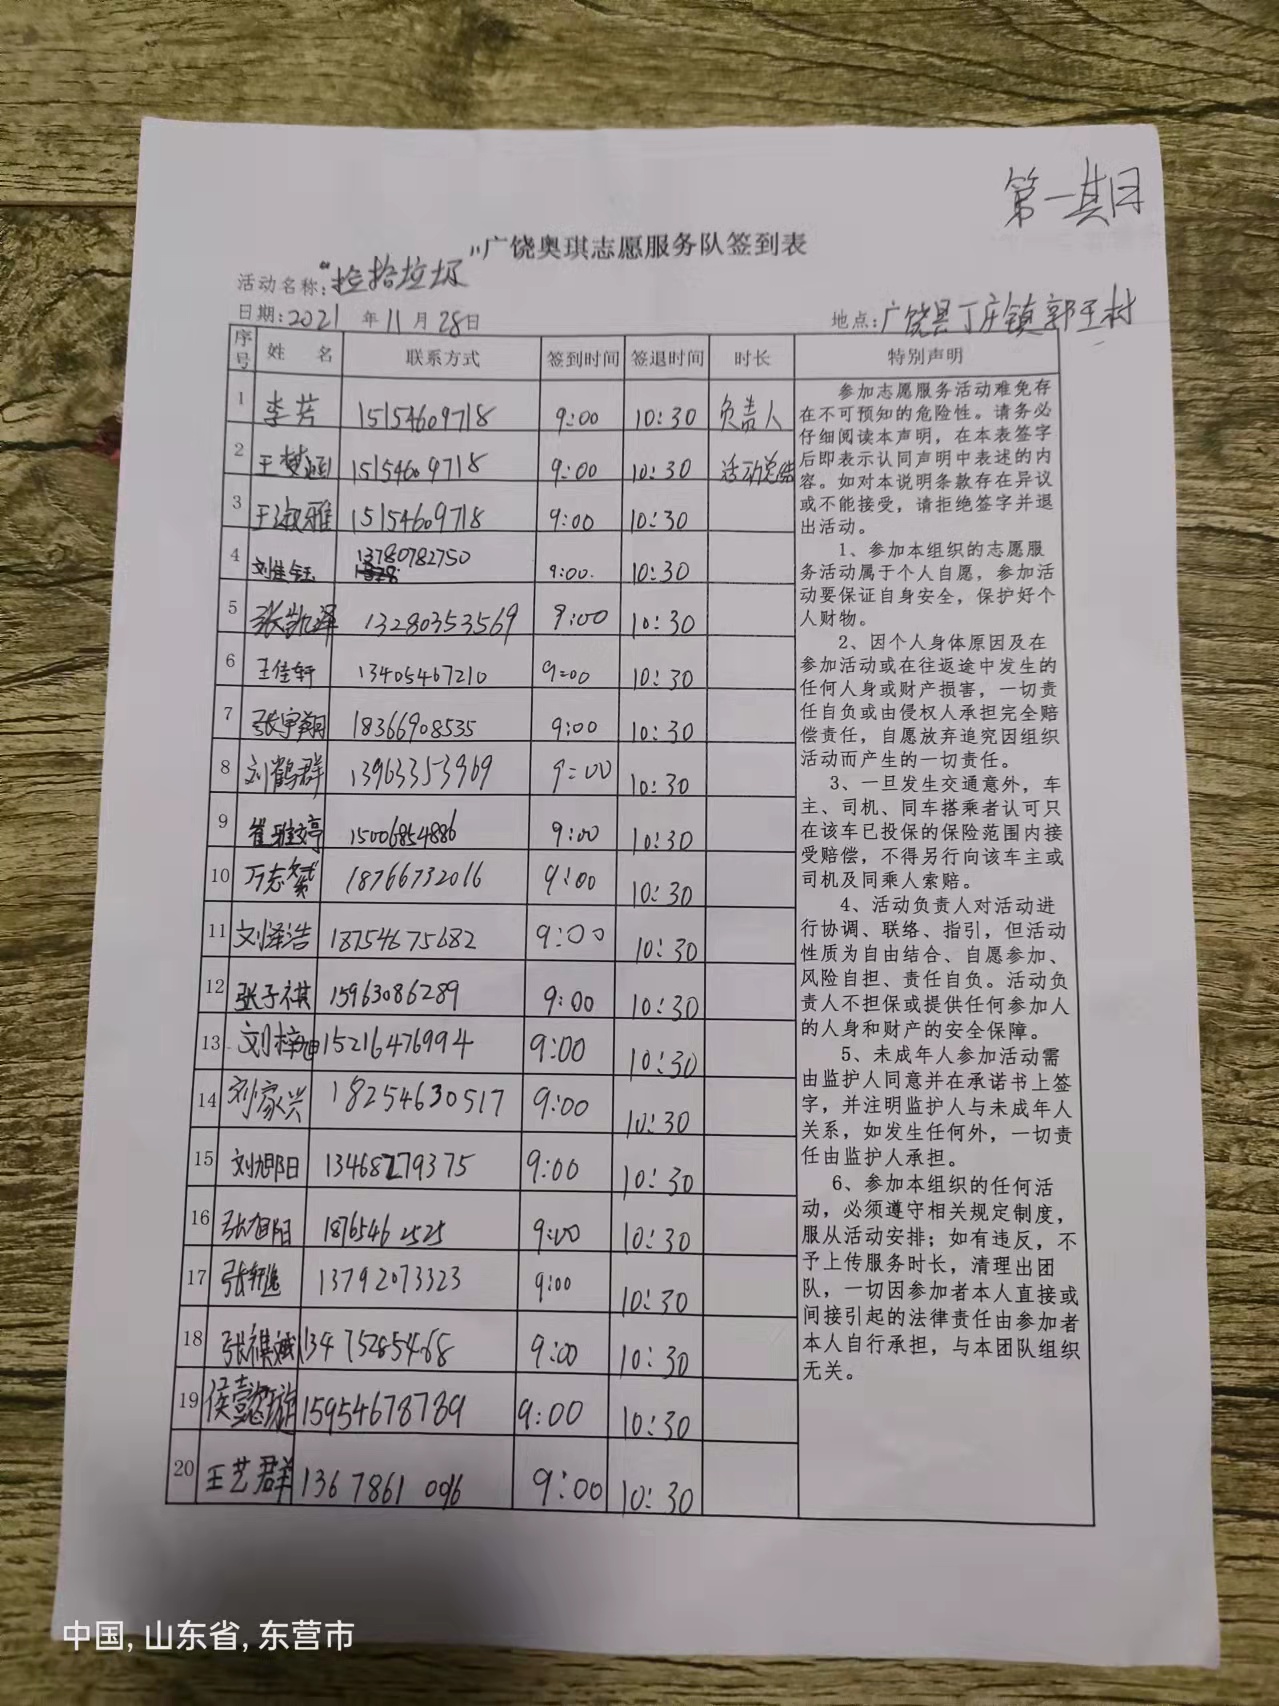 第一期
广饶奥琪志愿服务队签到表
活动名称:“捡拾垃圾”
日期:2021 年 11 月 28日 地点:广饶县丁庄镇郭王村
序号 姓 名 联系方式 签到时间 签退时间 时长 特别声明
1 李芳 15154609718 9:00 10:30 负责人
2 王梦涵 15154609718 9:00 10:30 活动总结
3 王淑雅 15154609718 9:00 10:30
4 刘佳钰 13780782750 9:00. 10:30
5 张凯泽 13280353569 9:00 10:30
6 王佳轩 13405467210 9:00 10:30
7 张宇翔 18366908535 9:00 10:30
8 刘鹤群 13963353969 9:00 10:30
9 崔雅婷 15006854886 9:00 10:30
10 万志 18766732016 9:00 10:30
11 刘泽浩 18754675682 9:00 10:30
12 张子祺 15963086289 9:00 10:30
13 刘梓 15216476994 9:00 10:30
14 刘家兴 18254630517 9:00 10:30
15 刘旭阳 13468279375 9:00 10:30
16 张旭阳 1876546 2525 9:00 10:30
17 张轩逸 13792073323 9:00 10:30
18 张祺斌 13475285468 9:00 10:30
19 侯懿璇 15954678789 9:00 10:30
20 王艺群 1367861 0096 9:00 10:30
参加志愿服务活动难免存
在不可预知的危险性。请务必
仔细阅读本声明，在本表签字
后即表示认同声明中表述的内
容。如对本说明条款存在异议
或不能接受，请拒绝签字并退
出活动。
1、参加本组织的志愿服
务活动属于个人自愿，参加活
动要保证自身安全，保护好个
人财物。
2、因个人身体原因及在
参加活动或在往返途中发生的
任何人身或财产损害，一切责
任自负或由侵权人承担完全赔
偿责任，自愿放弃追究因组织
活动而产生的一切责任。
3、一旦发生交通意外，车
主、司机、同车搭乘者认可只
在该车已投保的保险范围内接
受赔偿，不得另行向该车主或
司机及同乘人索赔。
4、活动负责人对活动进
行协调、联络、指引，但活动
性质为自由结合、自愿参加、
风险自担、责任自负。活动负
责人不担保或提供任何参加人
的人身和财产的安全保障。
5、未成年人参加活动需
由监护人同意并在承诺书上签
字，并注明监护人与未成年人
关系，如发生任何外，一切责
任由监护人承担。
6、参加本组织的任何活
动，必须遵守相关规定制度，
服从活动安排；如有违反，不
予上传服务时长，清理出团
队，一切因参加者本人直接或
间接引起的法律责任由参加者
本人自行承担，与本团队组织
无关。
中国, 山东省, 东营市